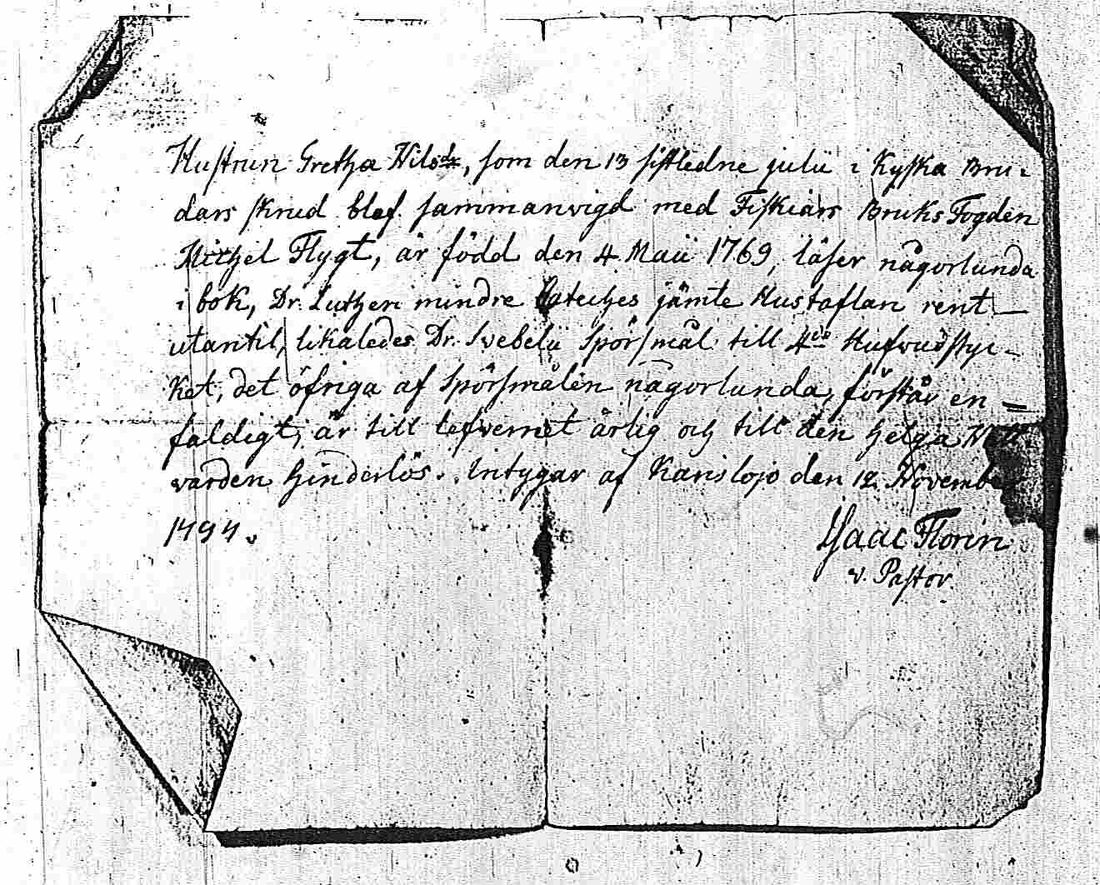 Hustrun Gretha Nilsdr, som den 13 sistledne julii i Kyska Bru-
dars skrud blef sammanvigd med Fiskiärs Bruks Fogden
Michel Flygt, är född den 4 Maii 1769, läser någorlunda
i bok, Dr. Lutheri mindre Cateches jämte Hustaflan rent
utantil, likaledes Dr. Svebelii Spörsmål till 4de Hufwudstyc-
ket, det öfriga af Spörsmålen någorlunda, förstår en-
faldigt, är till lefvernet ärlig och till den helga
varden hinderlös. Intygar af Karislojo den 12 November
1794.
Isaac Florin
v. Pastor